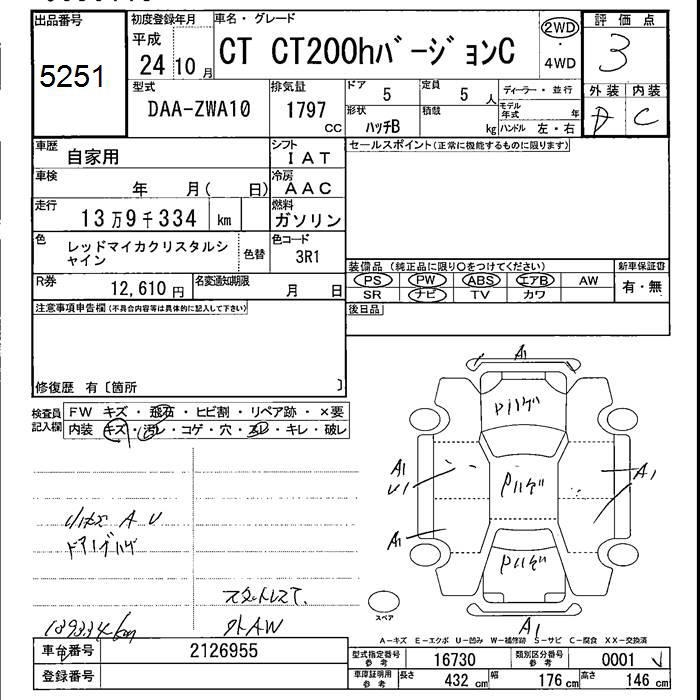 出品番号
5251
初度登録年月
平成
24 10 月
車名・グレード
CT CT200hﾊﾞｰｼﾞｮﾝC
2WD
・
4WD
評価点
3
外装 内装
D C
型式
DAA-ZWA10
排気量
1797
CC
ドア
5
定員
5 人
ディーラー・並行
形状
ﾊｯﾁB
積載
kg
モデル年式 年
ﾊﾝﾄﾞﾙ 左・右
車歴
自家用
シフト
IAT
セールスポイント(正常に機能するものに限ります)
車検
年 月( 日)
冷房
AAC
走行
13万9千334 km
燃料
ガソリン
色
レッドマイカクリスタルシ
ャイン
色替
色コード
3R1
装備品 (純正品に限り○をつけてください)
新車保証書
PS PW ABS エアB AW
有・無
SR ナビ TV カワ
R券
12,610 円
名変通知期限
月 日
後日品
注意事項申告欄(不具合内容等は具体的に記入して下さい)
修復歴 有〔箇所 〕
検査員
記入欄
FW キズ・飛石・ヒビ割・リペア跡・×要
内装 キズ・汚レ・コゲ・穴・スレ・キレ・破レ
A1
Pハゲ
A1
U1
Pハゲ
A1
A1
Pハゲ
A1
小キズ A U
ドアノブハゲ
スペア
139334km
外AW
A-キズ E-エクボ U-凹み W-補修跡 S-サビ C-腐食 XX-交換済
車台番号
2126955
型式指定番号
参考
16730
類別区分番号
参考
0001
登録番号
車庫証明用
参考
長さ
432 cm
幅
176 cm
高さ
146 cm